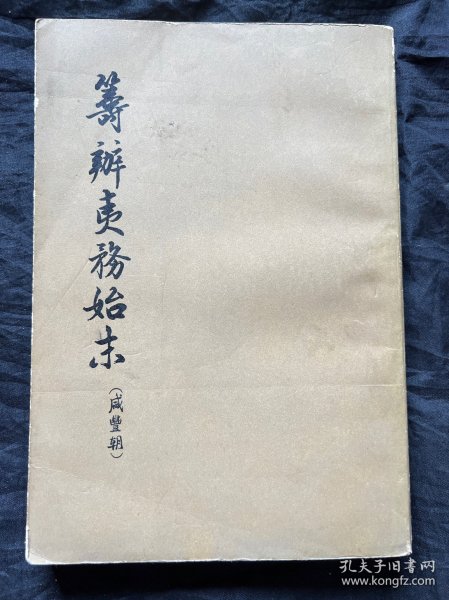 籌辦夷務始末
（咸豐朝）
孔夫子旧书网
www.kongfz.com